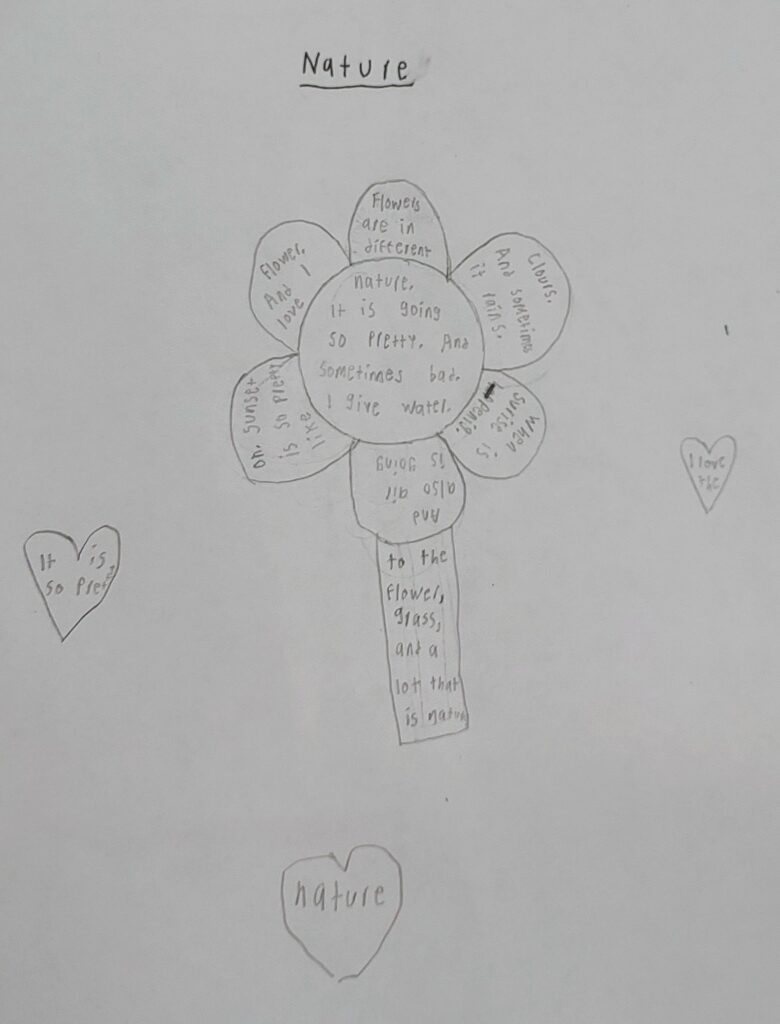 Nature
nature.
It is going
so pretty. And
sometimes bad.
I give water.
flower.
And I
love
Flowers
are in
different
clours.
And sometimes
it rains.
When
surise is
penig.
And
also air
is going
on. Sunset
is so pretty
like
to the
flower,
grass,
and a
lot that
is natur
I love
the
It is
so pret
nature